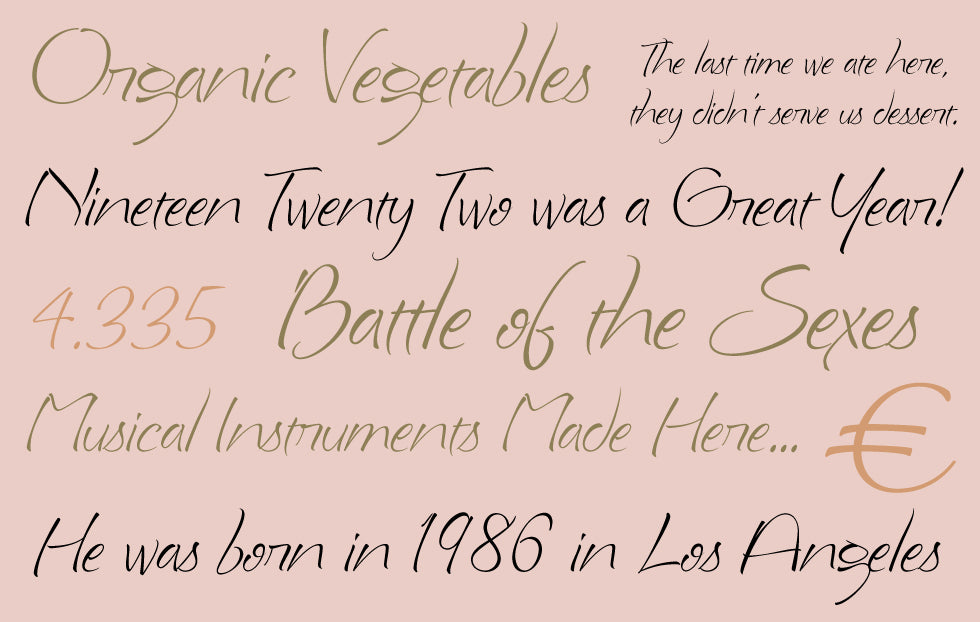 Organic Vegetables
The last time we ate here,
they didn't serve us dessert.
Nineteen Twenty Two was a Great Year!
4.335
Battle of the Sexes
Musical Instruments Made Here...
€
He was born in 1986 in Los Angeles